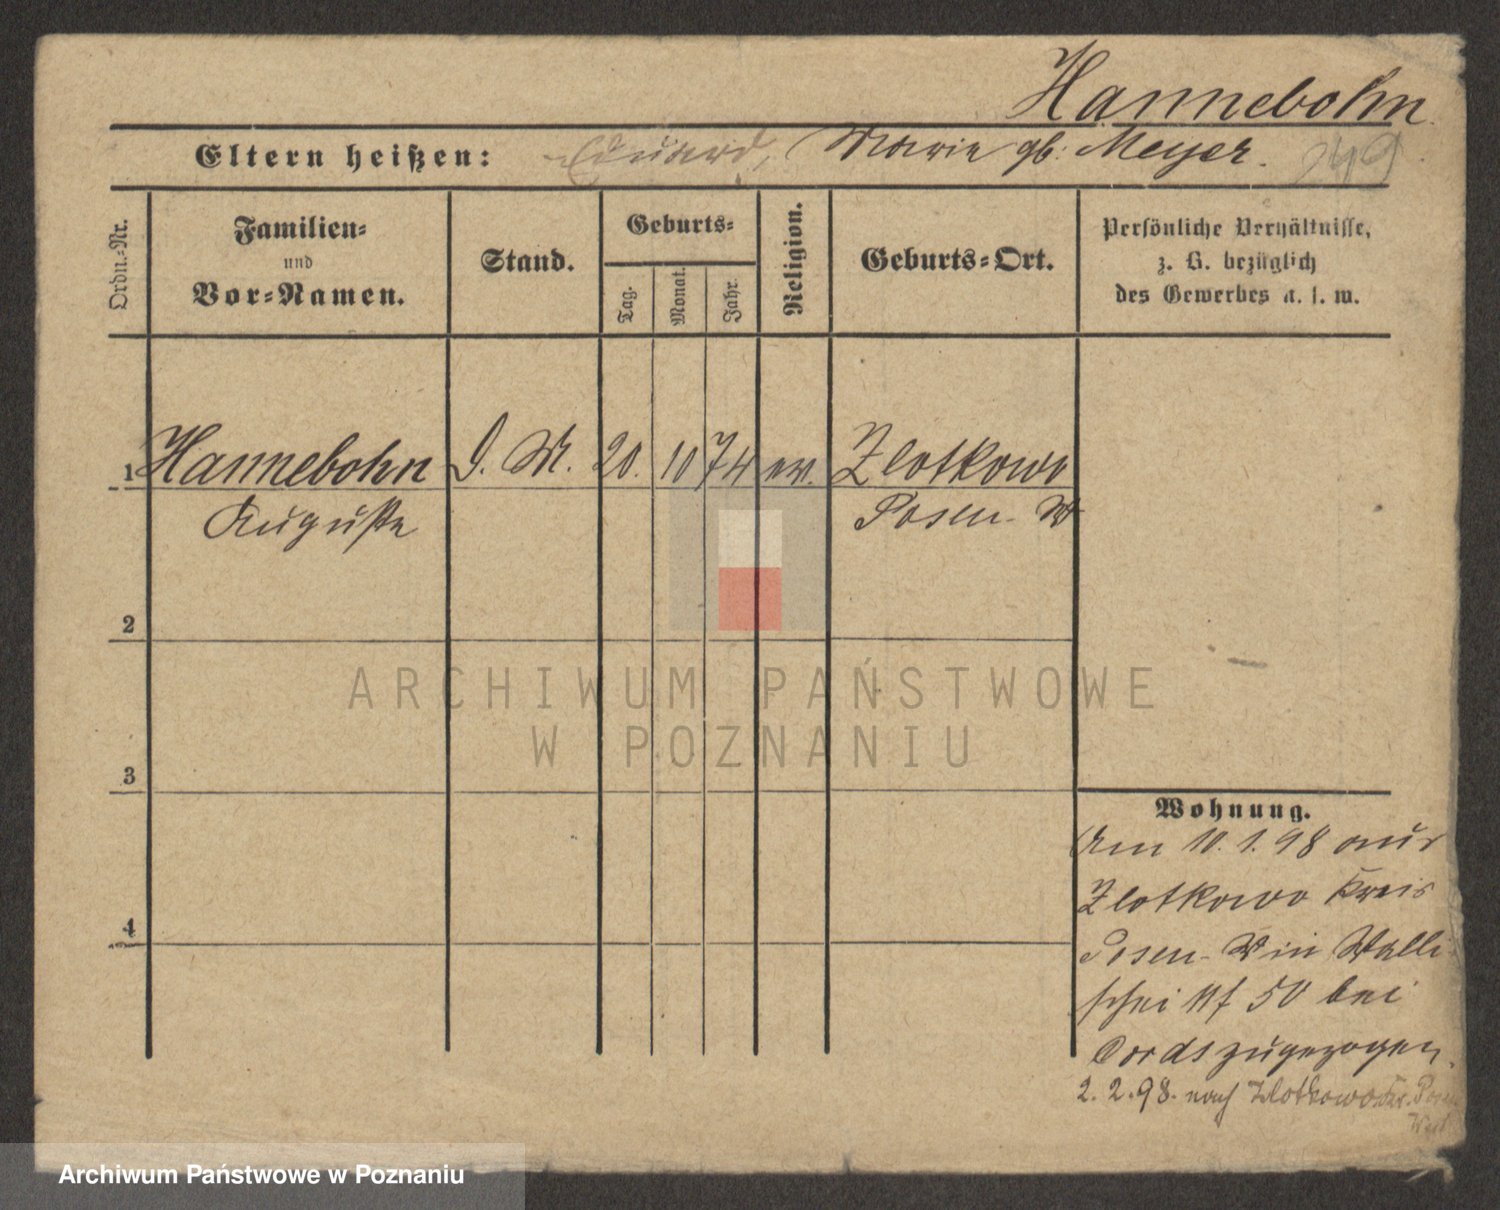 Hannebohn
Eltern heißen: Eduard, Marie gb: Meyer. 249
Ordn.-Nr.
Familien-
und
Vor-Namen.
Stand.
Geburts-
Tag.
Monat.
Jahr.
Religion.
Geburts-Ort.
Persönliche Verhältnisse,
z. B. bezüglich
des Gewerbes u. s. w.
1 Hannebohn D. M. 20. 10 74 ev. Zlotkowo
Auguste Posen W
2
3
4
Wohnung.
Am 10.1.98 aus
Zlotkowo Kreis
Posen-W in Walli
schei 50 bei
Cords zugezogen.
2.2.98. nach Zlotkowo Kr. Posen
West
ARCHIWUM PAŃSTWOWE
W POZNANIU
Archiwum Państwowe w Poznaniu